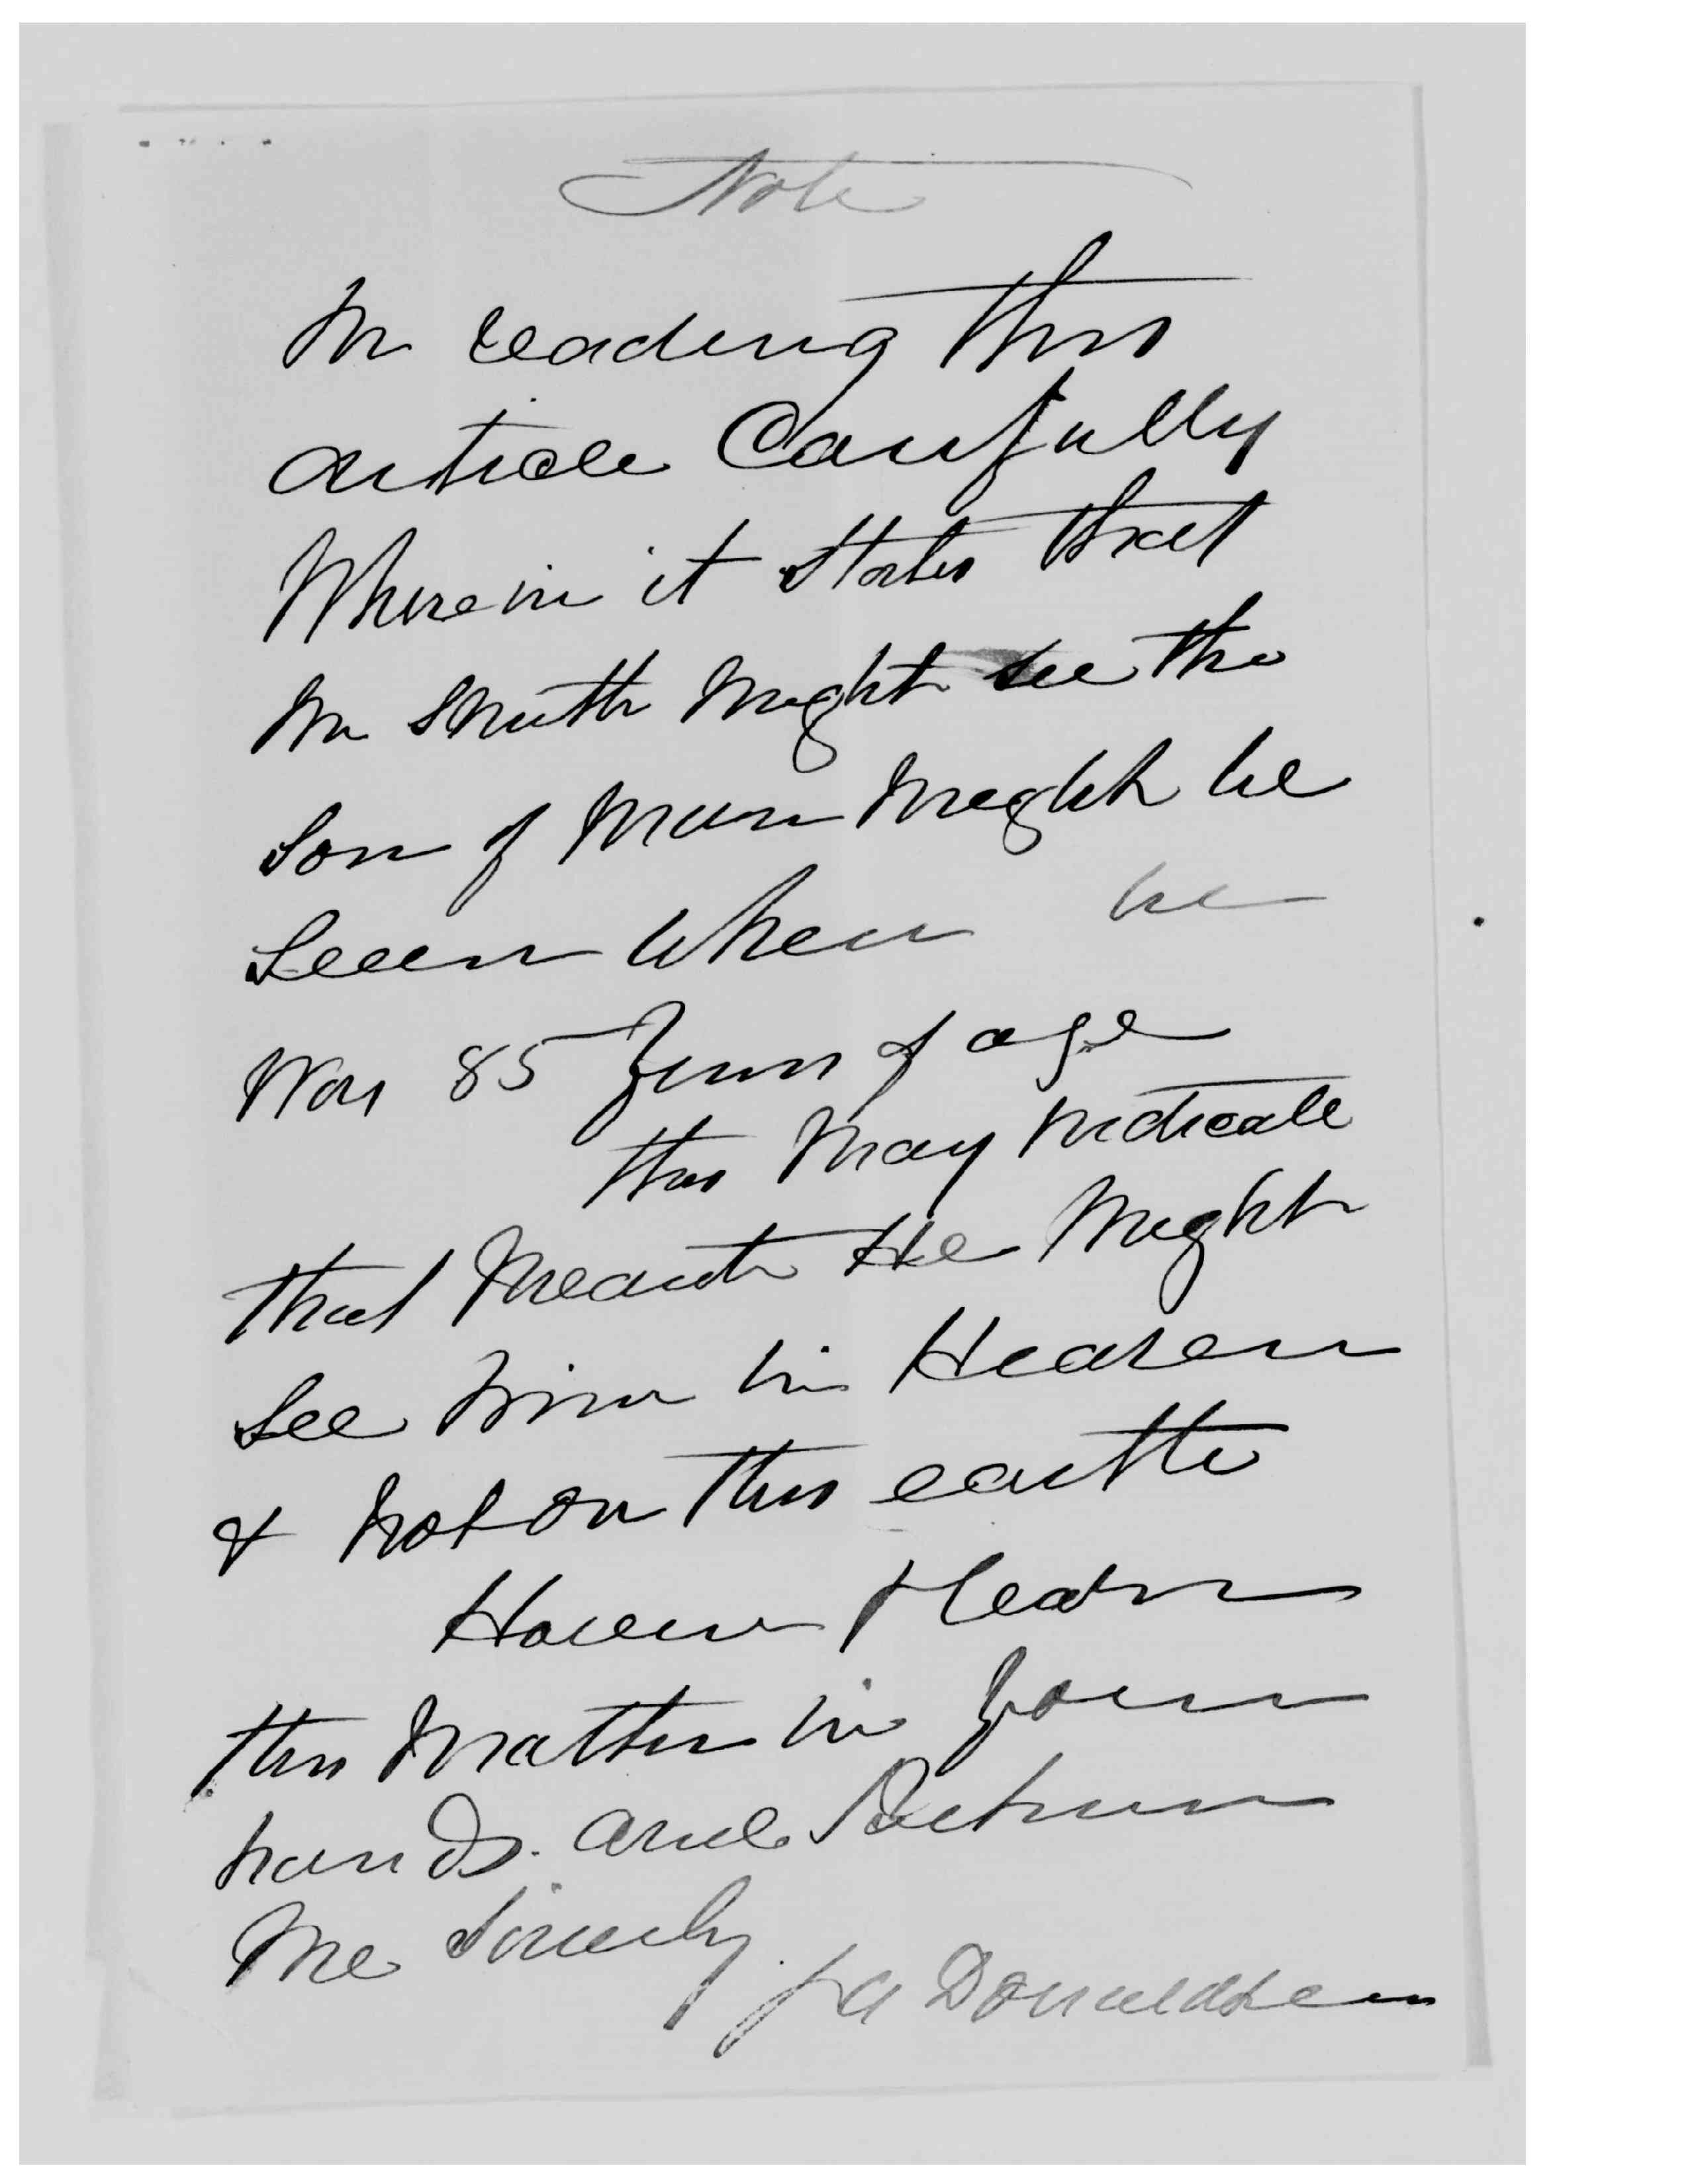 Note
In reading this
article Carefully
Wherein it States that
Mr Smith Might see the
Son of Man Might be
Seen when he
Was 85 Years of age
this May indicate
that Meant He Might
See him in Heaven
& not on this earth
However
this Matter in Your
hands. and Return
Me Sincerely
J A Donaldson